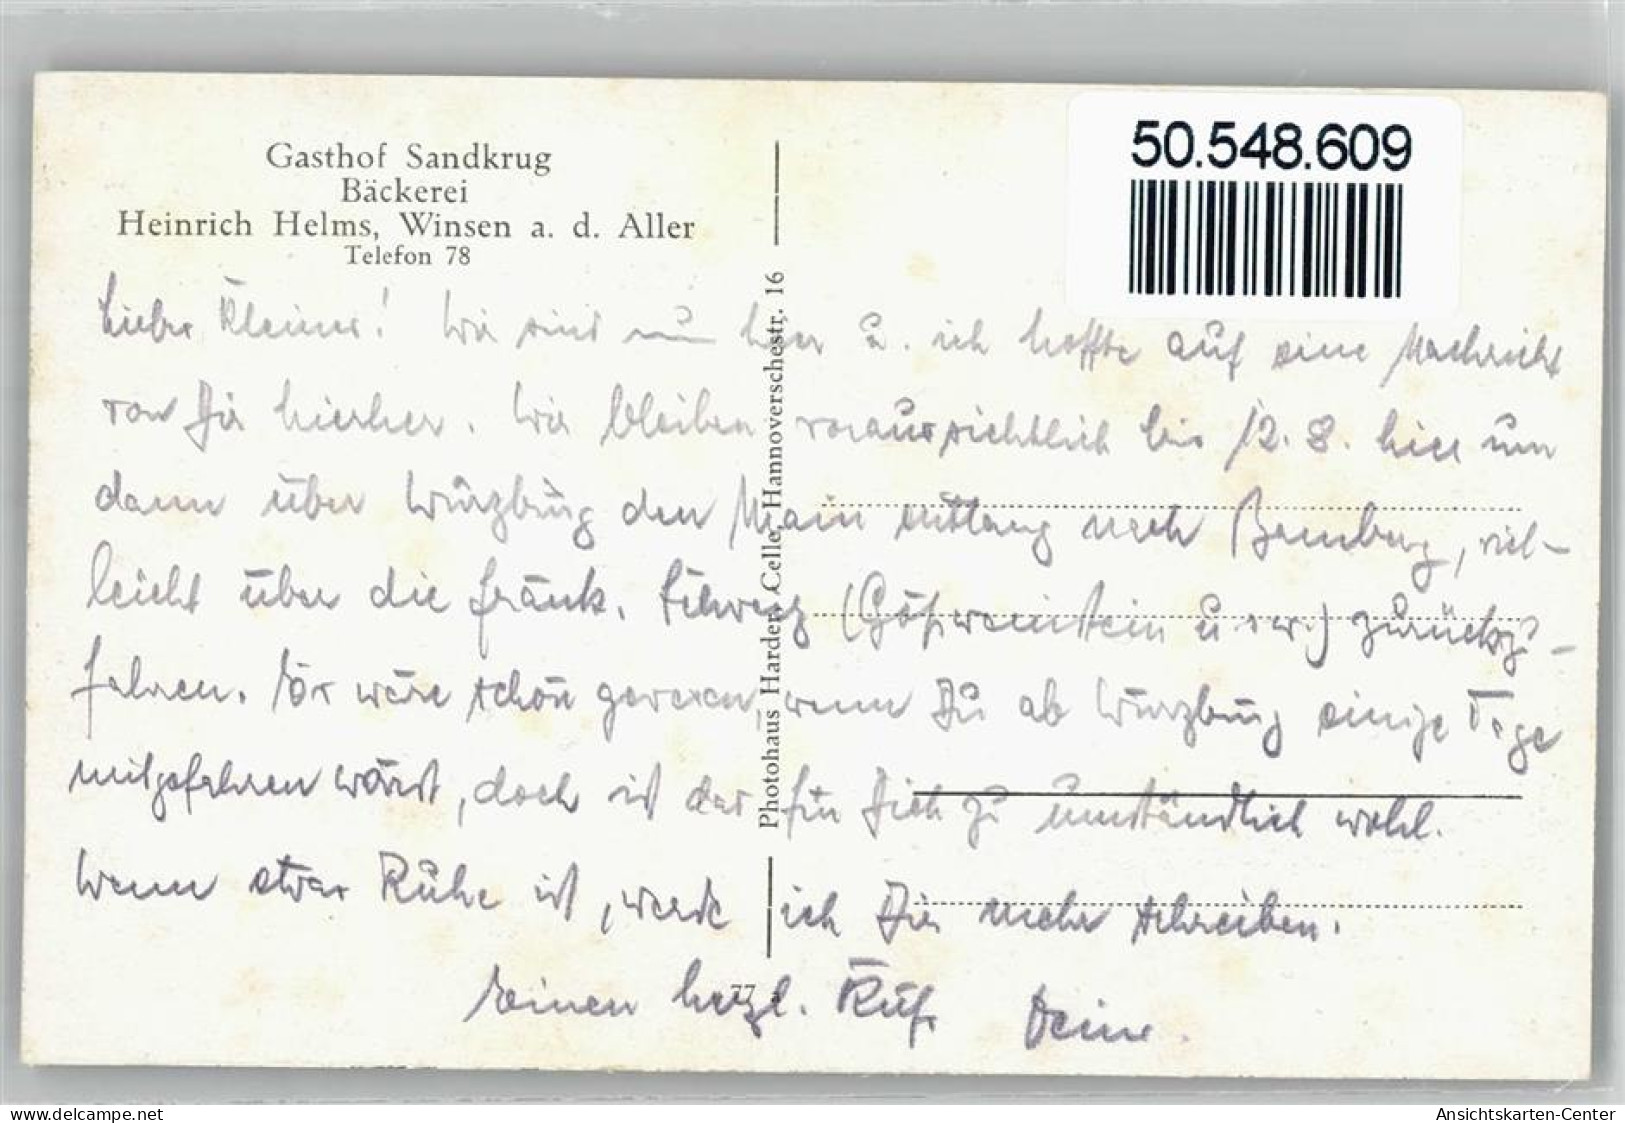 Gasthof Sandkrug
Bäckerei
Heinrich Helms, Winsen a. d. Aller
Telefon 78
50.548.609
Photohaus Harder, Celle, Hannoverschestr. 16
Lieber Kleiner! Wir sind nun hier u. ich hoffte auf eine Nachricht
von Dir hierher. Wir bleiben voraussichtlich bis 12. 8. hier um
dann über Würzburg den Main entlang nach Bamberg, viel-
leicht über die fränk. Schweiz (Gößweinstein u.s.w.) zurückzu-
fahren. Es wäre schön gewesen, wenn Du ab Würzburg einige Tage
mitgefahren wärst, doch ist das für Dich zu umständlich wohl.
Wenn etwas Ruhe ist, werde ich Dir mehr schreiben.
Einen herzl. Deine
77
delcampe.net
Ansichtskarten-Center